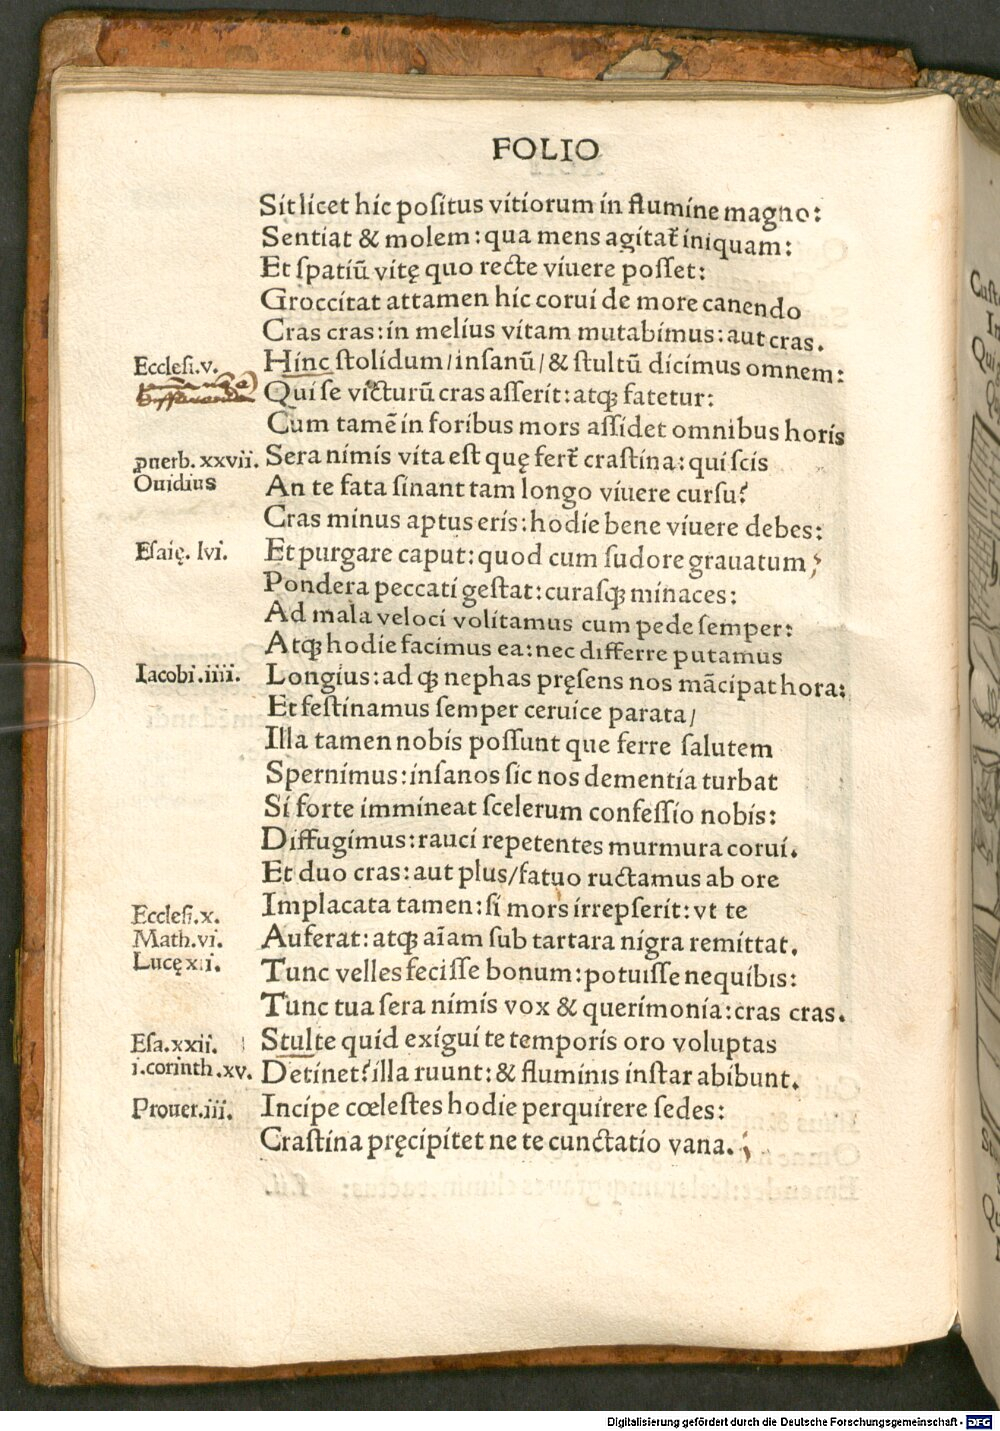 FOLIO
Sit licet hic poſitus vitiorum in flumine magno:
Sentiat & molem: qua mens agitat̃ iniquam:
Et ſpatiũ vitę quo recte viuere poſſet:
Groccitat attamen hic corui de more canendo
Cras cras: in melius vitam mutabimus: aut cras.
Eccleſi. v. Hinc ſtolidum/ inſanũ/ & ſtultũ dicimus omnem:
Qui ſe victurũ cras aſſerit: atqꝫ fatetur:
Cum tamẽ in foribus mors aſſidet omnibus horis
ꝓuerb. xxvii. Sera nimis vita eſt quę fert̃ craſtina: qui ſcis
Ouidius An te fata ſinant tam longo viuere curſu?
Cras minus aptus eris: hodie bene viuere debes:
Eſaię. lvi. Et purgare caput: quod cum ſudore grauatum
Pondera peccati geſtat: curaſqꝫ minaces:
Ad mala veloci volitamus cum pede ſemper:
Atqꝫ hodie facimus ea: nec differre putamus
Iacobi .iiii. Longius: ad qꝫ nephas pręſens nos mãcipat hora:
Et feſtinamus ſemper ceruice parata/
Illa tamen nobis poſſunt que ferre ſalutem
Spernimus: inſanos ſic nos dementia turbat
Si forte immineat ſcelerum confeſſio nobis:
Diffugimus: rauci repetentes murmura corui.
Et duo cras: aut plus/ fatuo ructamus ab ore
Eccleſi. x. Implacata tamen: ſi mors irrepſerit: vt te
Math. vi. Auferat: atqꝫ aĩam ſub tartara nigra remittat.
Lucę xii. Tunc velles feciſſe bonum: potuiſſe nequibis:
Tunc tua ſera nimis vox & querimonia: cras cras.
Eſa. xxii. Stulte quid exigui te temporis oro voluptas
i. corinth. xv. Detinet? illa ruunt: & fluminis inſtar abibunt.
Prouer. iii. Incipe cœleſtes hodie perquirere ſedes:
Craſtina pręcipitet ne te cunctatio vana.
Digitalisierung gefördert durch die Deutsche Forschungsgemeinschaft - DFG